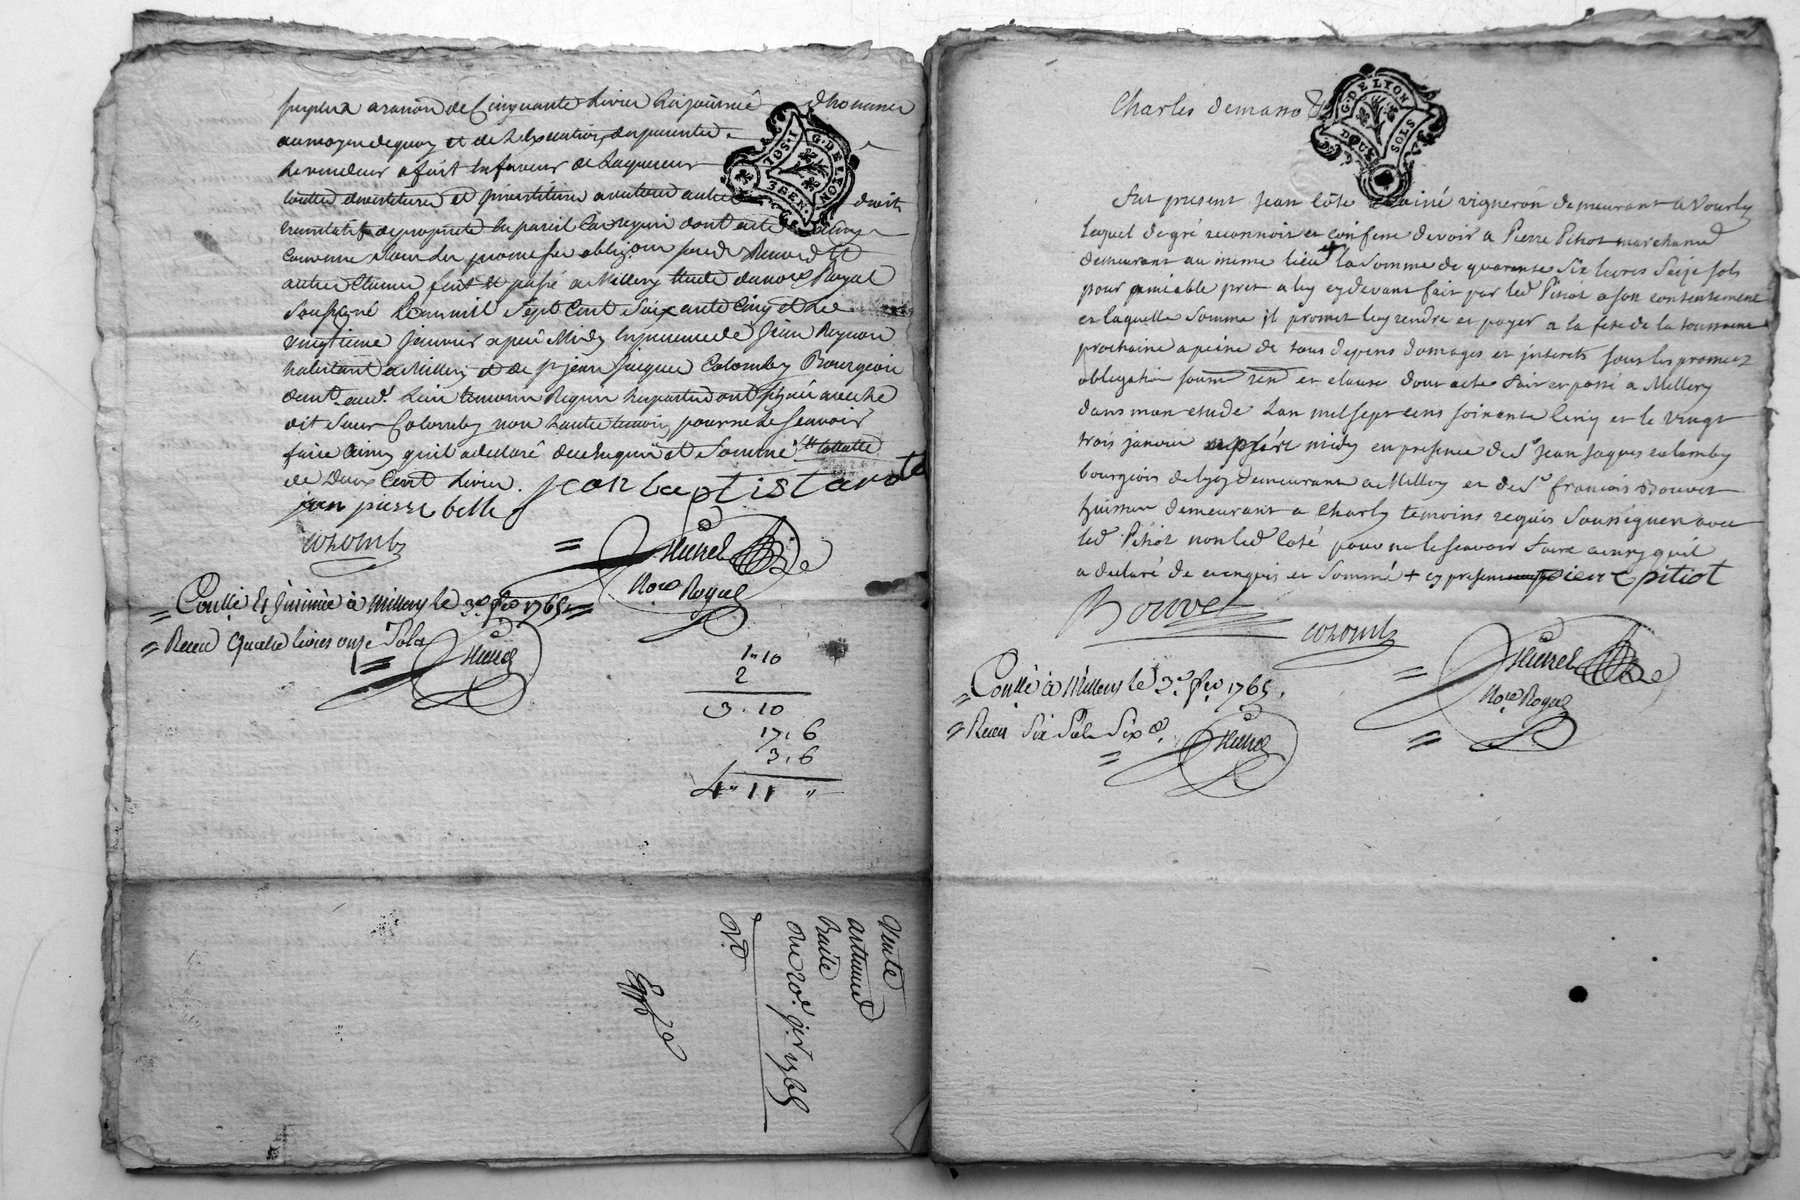 surplus a raison de Cinquante livres la journée d'hommes
au moyen de quoy et de l'execution du presentes
le vendeur a fait en faveur de l'aquereur
toutte devestiture et investiture avec tous autres droits
translatifs de propriété en pareil Cas requis dont acte
Convenu Pour les promesses obligaon soumd Renond et
autres Clauses fait et passé a Millery Etude du nore Royal
soussigné Le an mil Sept Cent Soixante Cinq et Le
vingtieme Janvier apres Midy En presence de Jean
habitant a Millery et de Sr Jean Jacques Colomby Bourgeois
demt aud. Lieu temoins Requis les parties ont signé avec le
dit Sieur Colomby non l'autre temoin pour ne le sçavoir
faire ainsy quil a declaré de ce Enquis et Sommé
de Deux Cent livres. jean baptist
jan pierre belle
colomby
Nore Royal
Conllé Et Insinüé à Millery le 3e fro 1765.
Reçu Quatre livres onze Sols
G. DE LYON
1"10
2
3.10
17,6
3,6
4"11"
Vente
Du 20e jer 1765
Expé
Charles demano
G. DE LYON
DEUX SOLS
Fut present Jean Côte ainé vigneron demeurant a Vourly
lequel de gré reconnoit et confesse devoir a Pierre Pitiot marchand
demeurant au même lieu + la somme de quarante six livres seize sols
pour amiable prest a luy cy devant fait par led Pitiot a son contentement
et laquelle somme il promet luy rendre et payer a la fete de la toussaint
prochaine a peine de tous depens domages et interets sous les promesses
obligation soumn ren et clause dont acte fait et passé a Millery
dans mon etude Lan mil sept cens soixante cinq et le vingt
trois janvier après midy en presence de Sr Jean Jaques colomby
bourgeois de lyon demeurant a Millery et de Sr françois Bouvet
huissier demeurant a Charly temoins requis soussignez avec
led Pitiot non led Coté pour ne le sçavoir faire ainsy quil
a declaré de ce enquis et sommé + cy present pierre pitiot
Bouvet
colomby
Nore Royal
Conllé à Millery le 3e fro 1765.
Reçu Six Sols Six d.